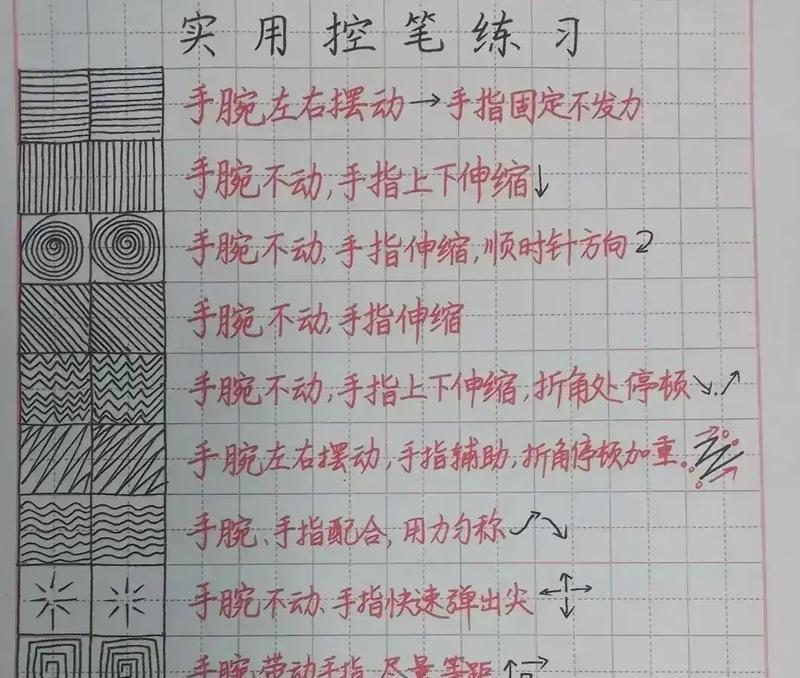 实用控笔练习
手腕左右摆动→手指固定不发力
手腕不动,手指上下伸缩↓
手腕不动,手指伸缩,顺时针方向
手腕不动,手指伸缩
手腕不动,手指上下伸缩,折角处停顿↘.↗
手腕左右摆动,手指辅助,折角停顿加重。
手腕、手指配合,用力匀称
手腕不动、手指快速弹出尖
手腕带动手指 尽量等距↑→